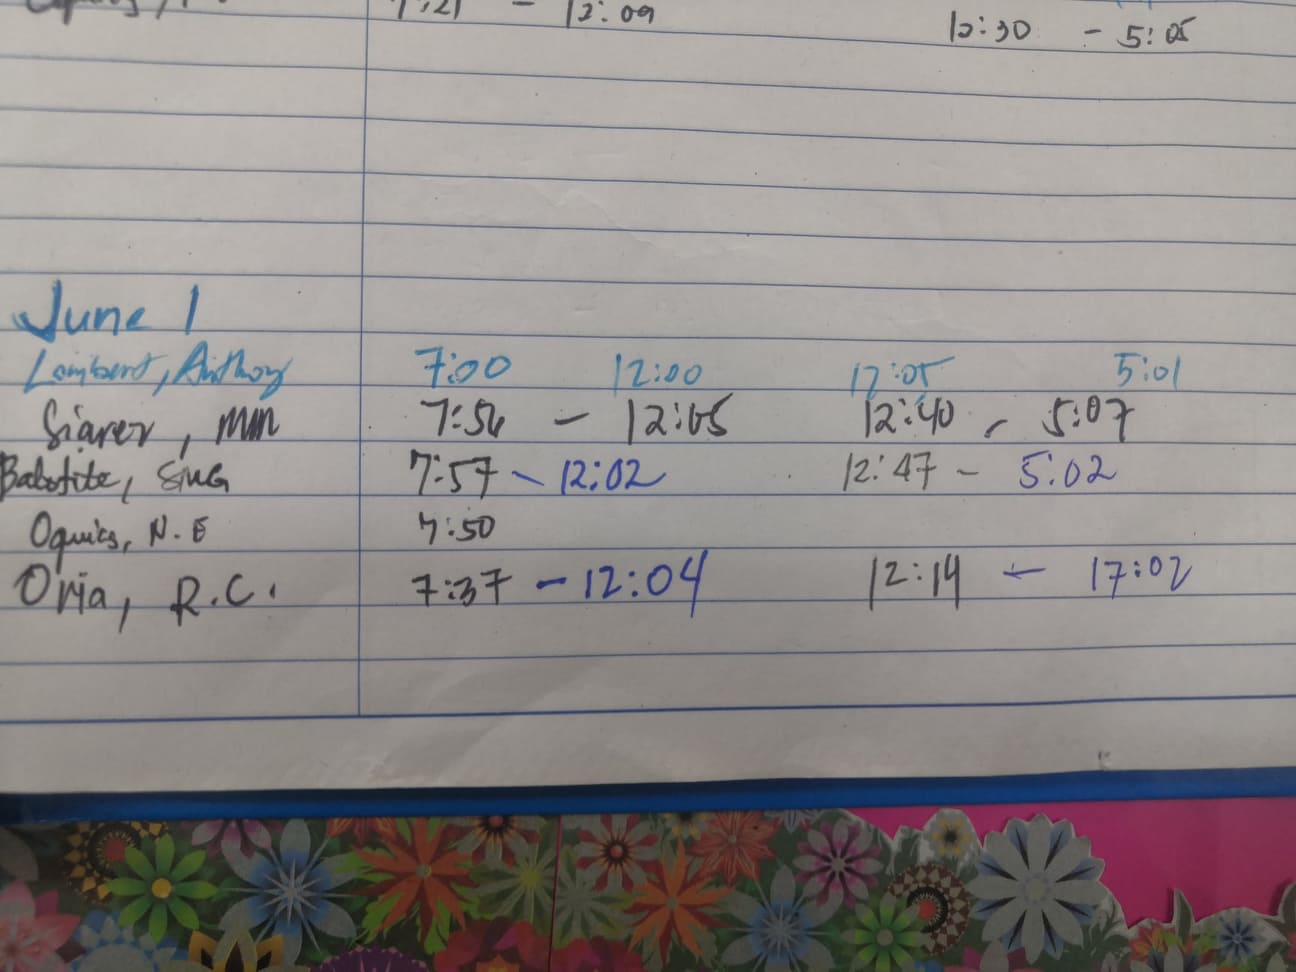 7:21 - 12:09 12:30 - 5:05
June 1
Lambert, Anthony 7:00 12:00 12:05 5:01
Siarer, MM 7:56 - 12:05 12:40 - 5:07
Babotite, 7:57 - 12:02 12:47 - 5:02
N.E 7:50
Oria, R.C. 7:37 - 12:04 12:14 - 17:02